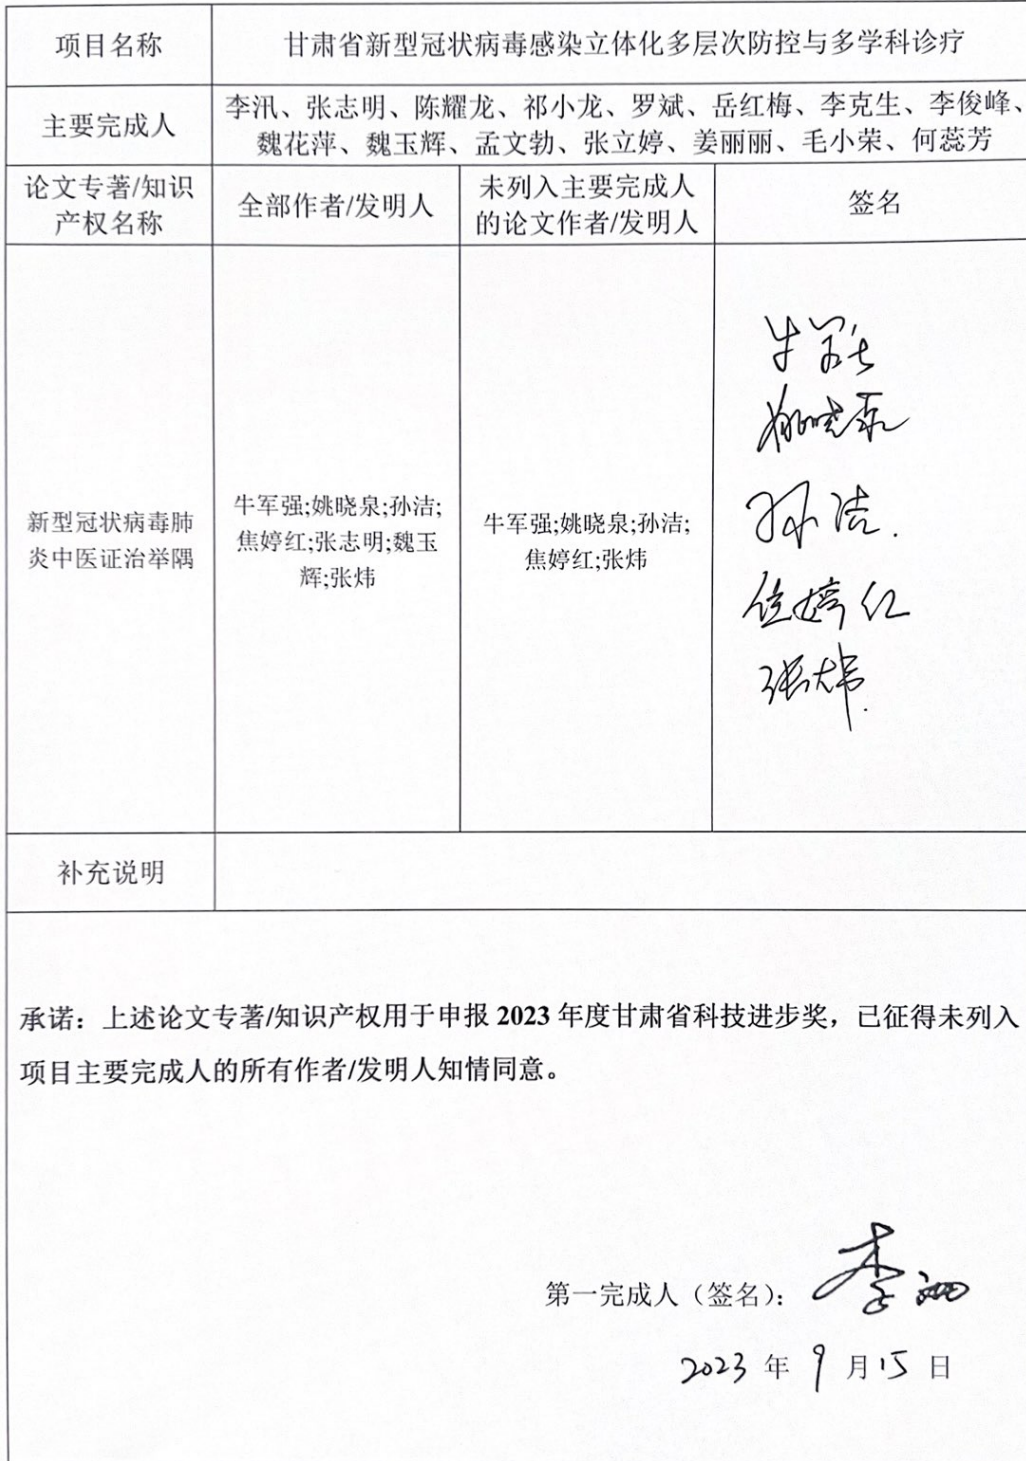 项目名称
甘肃省新型冠状病毒感染立体化多层次防控与多学科诊疗
主要完成人
李汛、张志明、陈耀龙、祁小龙、罗斌、岳红梅、李克生、李俊峰、
魏花萍、魏玉辉、孟文勃、张立婷、姜丽丽、毛小荣、何蕊芳
论文专著/知识
产权名称
全部作者/发明人
未列入主要完成人
的论文作者/发明人
签名
新型冠状病毒肺
炎中医证治举隅
牛军强;姚晓泉;孙洁;
焦婷红;张志明;魏玉
辉;张炜
牛军强;姚晓泉;孙洁;
焦婷红;张炜
牛军强
姚晓泉
孙洁.
焦婷红
张炜.
补充说明
承诺：上述论文专著/知识产权用于申报 2023 年度甘肃省科技进步奖，已征得未列入
项目主要完成人的所有作者/发明人知情同意。
第一完成人（签名）：李汛
2023 年 9 月 15 日